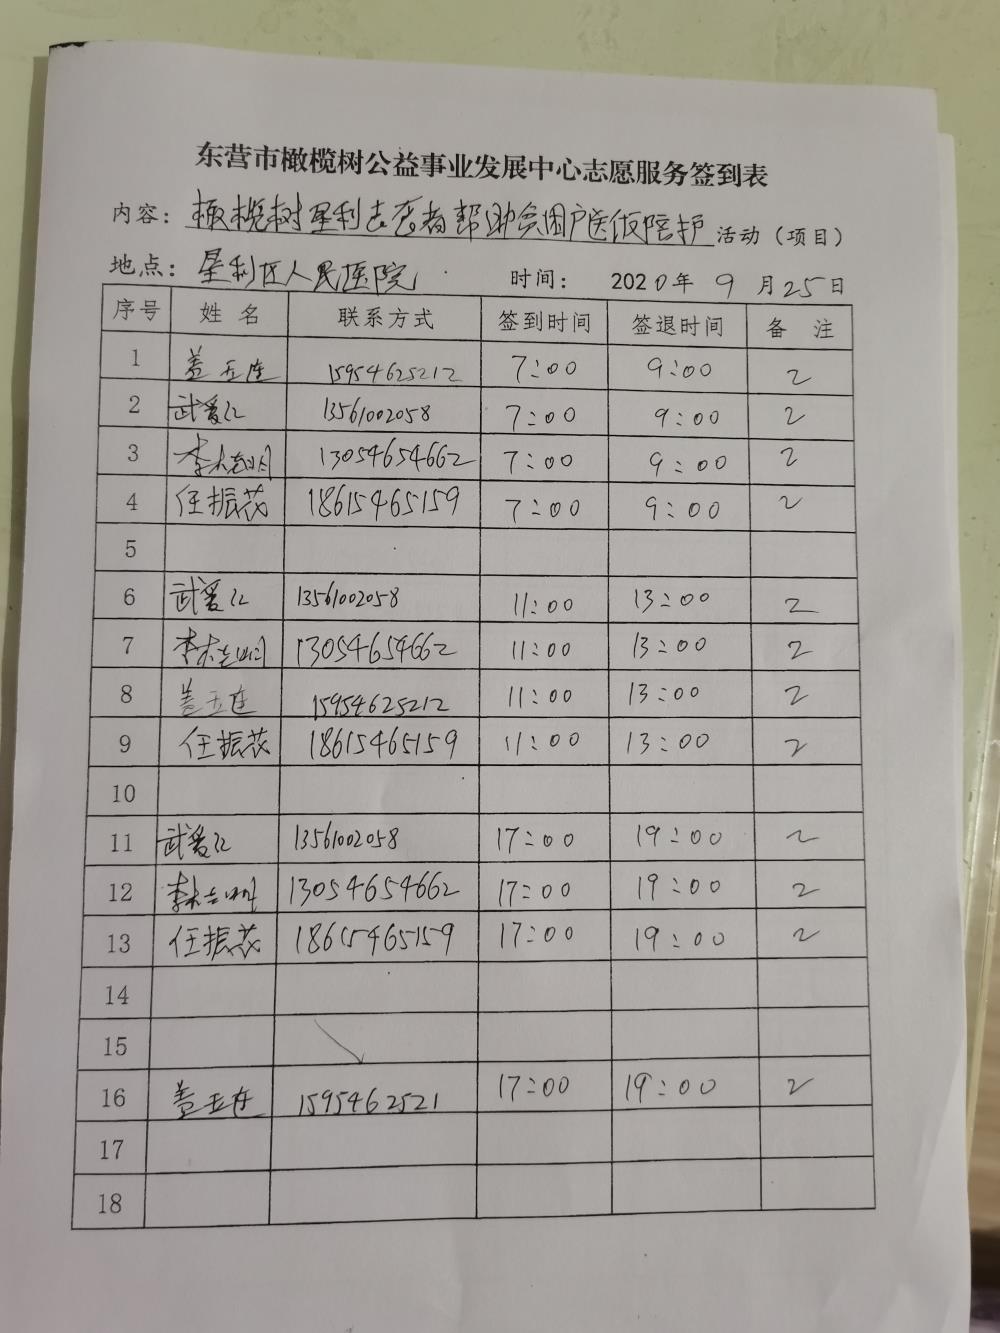 东营市橄榄树公益事业发展中心志愿服务签到表
内容：橄榄树垦利志愿者帮助贫困户医饭陪护活动（项目）
地点：垦利区人民医院 时间： 2020年 9 月 25日
序号 姓 名 联系方式 签到时间 签退时间 备 注
1 盖玉连 15954625212 7:00 9:00 2
2 武爱江 13561002058 7:00 9:00 2
3 李 13054654662 7:00 9:00 2
4 任振花 18615465159 7:00 9:00 2
5
6 武爱江 13561002058 11:00 13:00 2
7 李 13054654662 11:00 13:00 2
8 盖玉连 15954625212 11:00 13:00 2
9 任振花 18615465159 11:00 13:00 2
10
11 武爱江 13561002058 17:00 19:00 2
12 李 13054654662 17:00 19:00 2
13 任振花 18615465159 17:00 19:00 2
14
15
16 盖玉连 1595462521 17:00 19:00 2
17
18